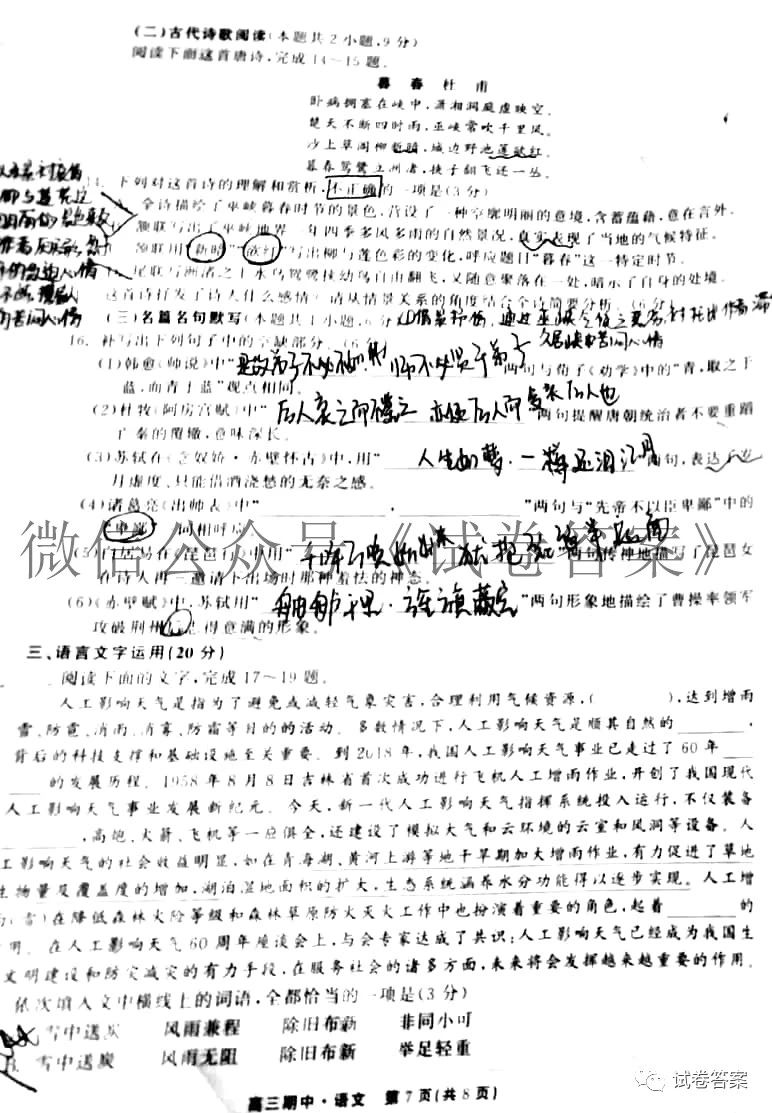 (二)古代诗歌阅读(本题共2小题,9分)
阅读下面这首唐诗,完成14~15题。
暮春 杜甫
卧病拥塞在峡中,潇湘洞庭虚映空。
楚天不断四时雨,巫峡常吹千里风。
沙上草阁柳新暗,城边野池莲欲红。
暮春鸳鹭立洲渚,挟子翻飞还一丛。
14. 下列对这首诗的理解和赏析,不正确的一项是(3分)
全诗描绘了巫峡暮春时节的景色,营设了一种寥廓明丽的意境,含蓄蕴藉,意在言外。
颔联写出了巫峡地界一年四季多风多雨的自然景况,真实表现了当地的气候特征。
颈联用“新暗”“欲红”写出柳与莲色彩的变化,呼应题目“暮春”这一特定时节。
尾联写洲渚之上水鸟鸳鹭挟幼鸟自由翻飞,又随意聚落在一处,暗示了自身的处境。
这首诗抒发了诗人什么感情?请从情景关系的角度结合全诗简要分析。(6分)
(三)名篇名句默写(本题共1小题,6分)
16. 补写出下列句子中的空缺部分。(6
(1)韩愈《师说》中“是故弟子不必不如师 师不必贤于弟子”两句与荀子《劝学》中的“青,取之于
蓝,而青于蓝”观点相同。
(2)杜牧《阿房宫赋》中“后人哀之而不鉴之 亦使后人而复哀后人也”两句提醒唐朝统治者不要重蹈
亡秦的覆辙,意味深长。
(3)苏轼在《念奴娇·赤壁怀古》中,用“人生如梦,一樽还酹江月”两句,表达了岁
月虚度,只能借酒浇愁的无奈之感。
(4)诸葛亮《出师表》中“ , ”两句与“先帝不以臣卑鄙”中的
“卑鄙”一词相呼应
(5)白居易在《琵琶行》中用“千呼万唤始出来 犹抱琵琶半遮面”两句传神地描写了琵琶女
在诗人再三邀请下出场时那种羞怯的神态。
(6)《赤壁赋》中,苏轼用“舳舻千里,旌旗蔽空”两句形象地描绘了曹操率领军
攻破荆州后志得意满的形象。
微信公众号《试卷答案》
三、语言文字运用(20分)
阅读下面的文字,完成17~19题。
人工影响天气是指为了避免或减轻气象灾害,合理利用气候资源,( ),达到增雨
雪、防雹、消雨、消雾、防霜等目的的活动。多数情况下,人工影响天气是顺其自然的______,
背后的科技支撑和基础设施至关重要。到2018年,我国人工影响天气事业已走过了60年
____的发展历程。1958年8月8日吉林省首次成功进行飞机人工增雨作业,开创了我国现代
人工影响天气事业发展新纪元。今天,新一代人工影响天气指挥系统投入运行,不仅装备
______,高炮、火箭、飞机等一应俱全,还建设了模拟大气和云环境的云室和风洞等设备。人
工影响天气的社会效益明显,如在青海湖、黄河上游等地干旱期加大增雨作业,有力促进了草地
生物量及覆盖度的增加,湖泊湿地面积的扩大,生态系统涵养水分功能得以逐步实现。人工增
雨(雪)在降低森林火险等级和森林草原防火灭火工作中也扮演着重要的角色,起着______的
作用。在人工影响天气60周年座谈会上,与会专家达成了共识:人工影响天气已经成为我国生
态文明建设和防灾减灾的有力手段,在服务社会的诸多方面,未来将会发挥越来越重要的作用。
依次填入文中横线上的词语,全都恰当的一项是(3分)
雪中送炭 风雨兼程 除旧布新 非同小可
雪中送炭 风雨无阻 除旧布新 举足轻重
高三期中·语文 第7页(共8页)
试卷答案